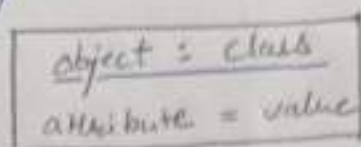 object : class
attribute = value